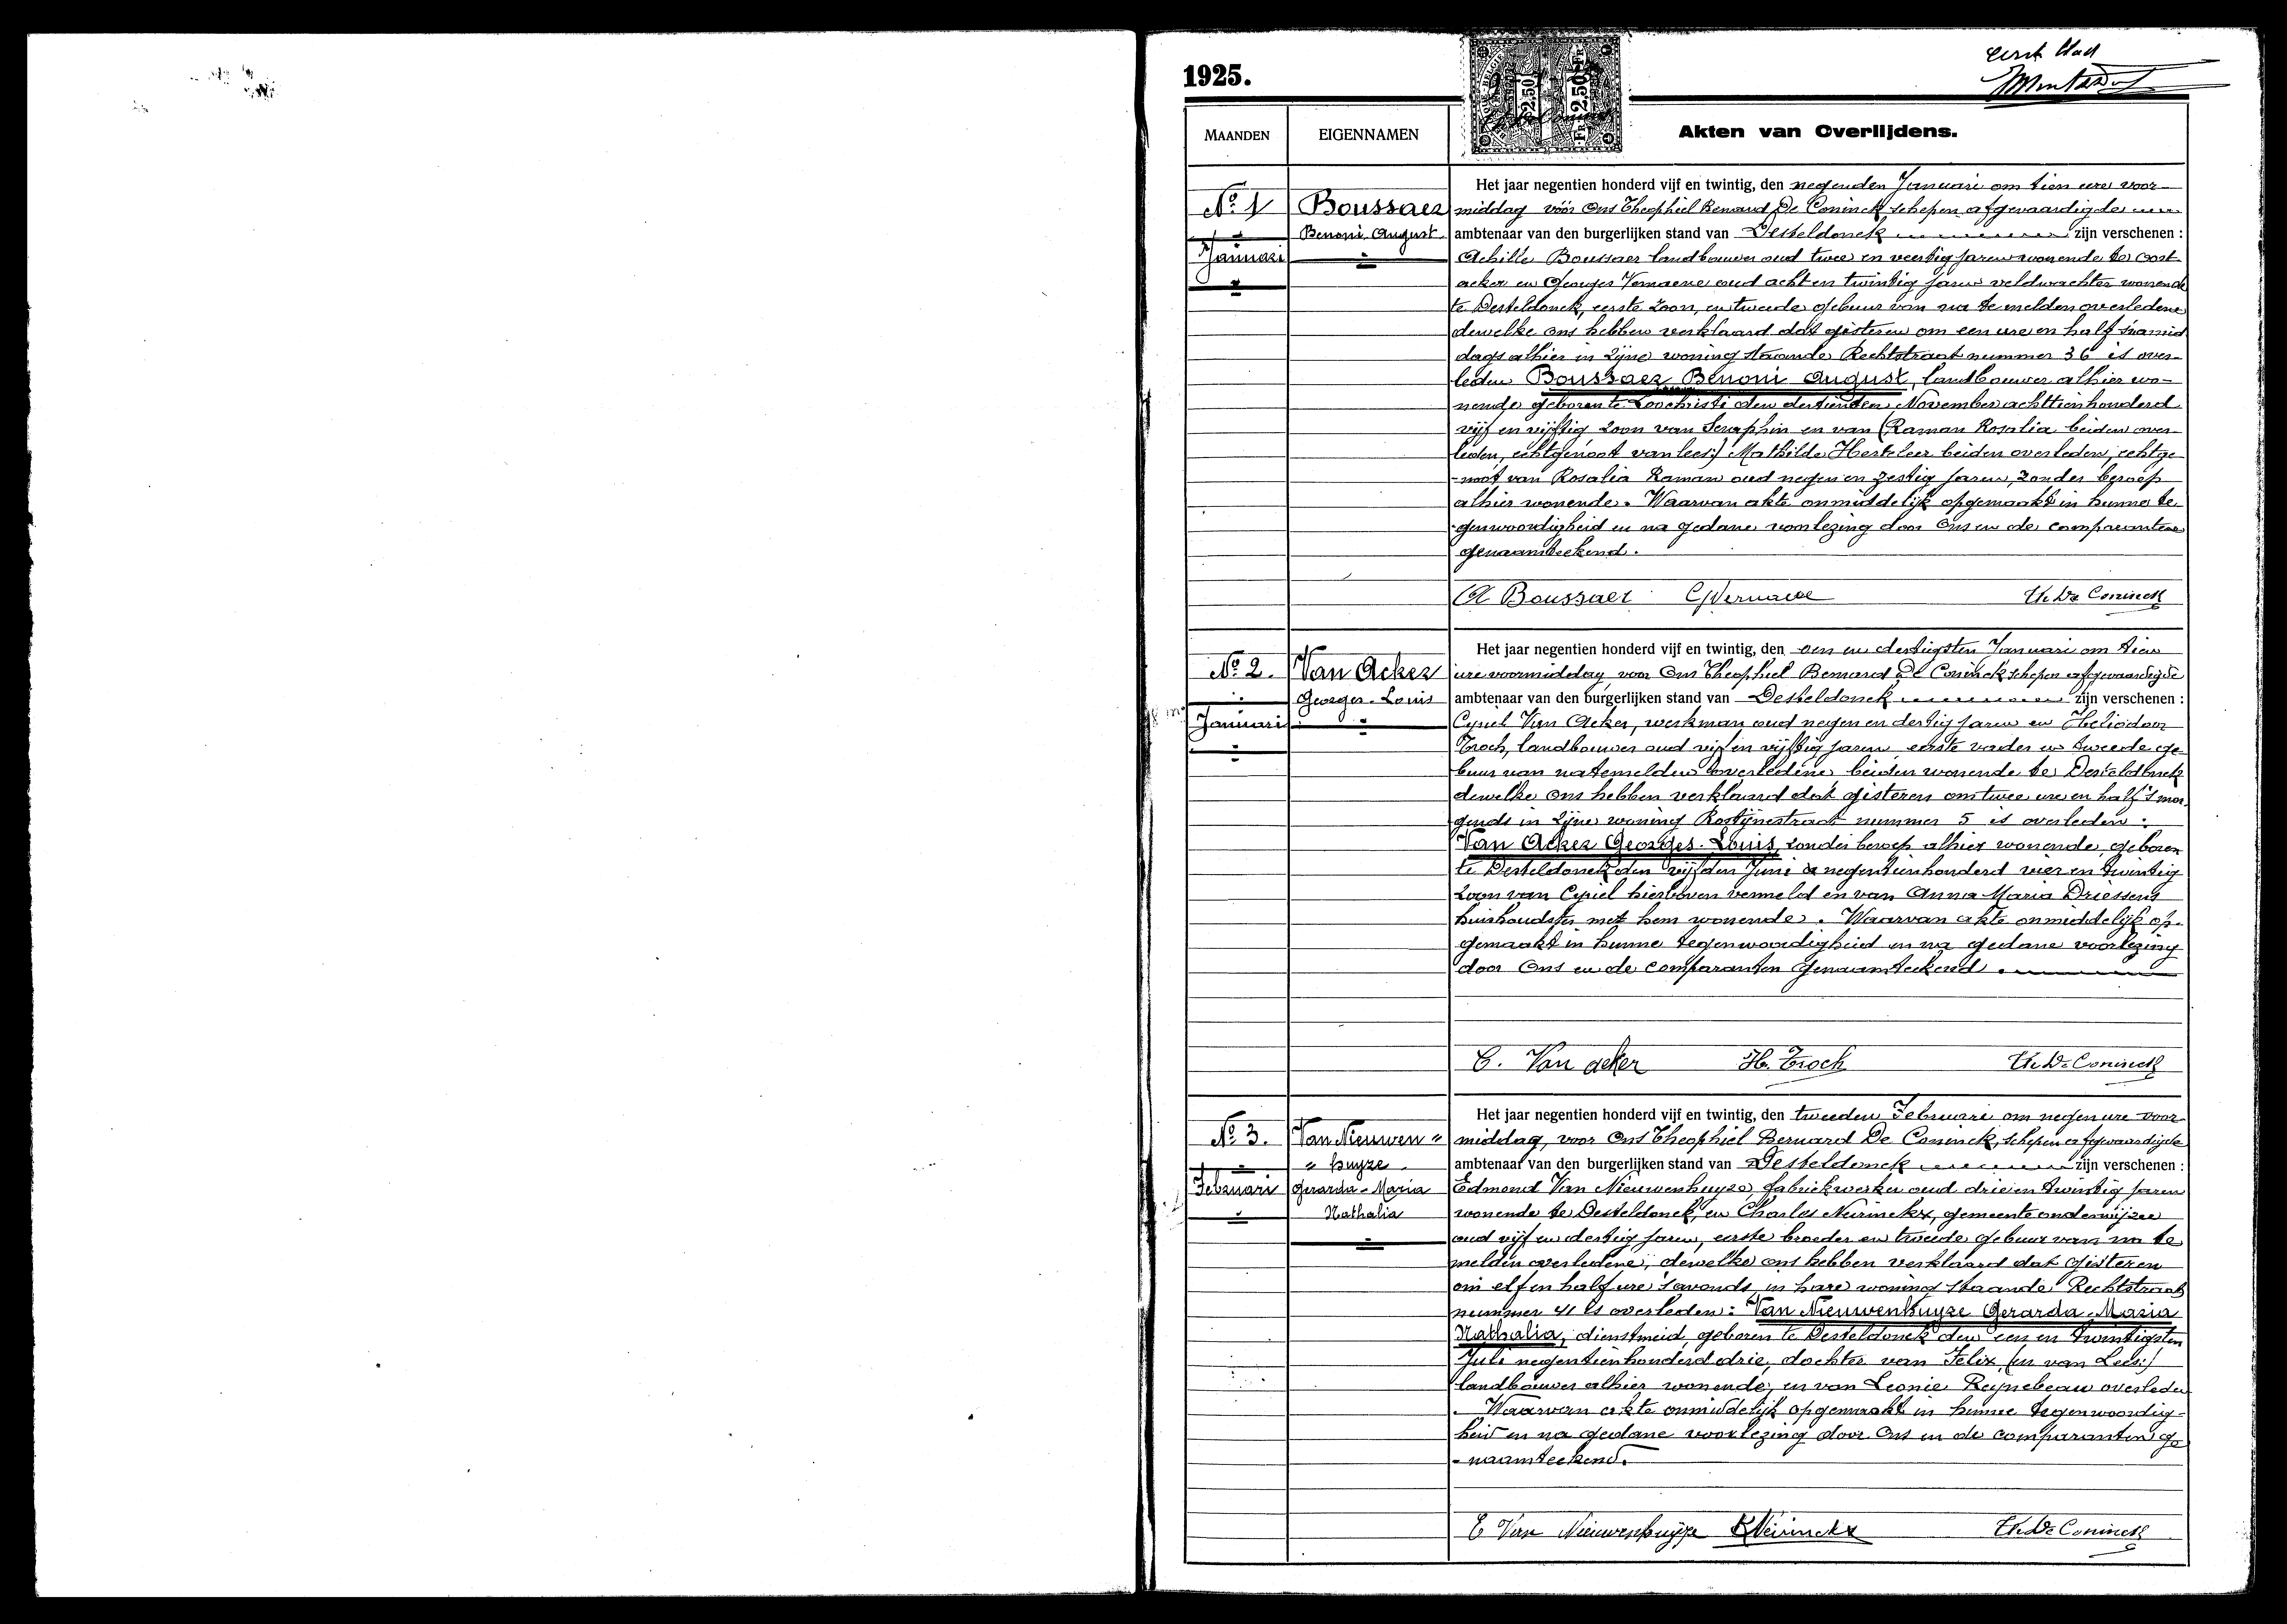 eerst blad
1925.
2.50 FR 2.50 FR
MAANDEN
EIGENNAMEN
Akten van Overlijdens.
No. 1
Januari
Boussaer
Benoni August
Het jaar negentien honderd vijf en twintig, den negenden Januari om tien ure voor-
middag vóór Ons Theophiel Bernard De Coninck schepen afgevaardigde
ambtenaar van den burgerlijken stand van Desteldonck zijn verschenen :
Achille Boussaer landbouwer oud twee en veertig jaren wonende te Oost-
acker en Georges Vernaeve oud acht en twintig jaren veldwachter wonende
te Desteldonck, eerste zoon, en tweede gebuur van na te melden overledene
dewelke ons hebben verklaard dat gisteren om een ure en half s'namid
dags alhier in zijne woning staande Rechtstraat nummer 36 is over-
leden Boussaer Benoni August, landbouwer alhier wo-
nende geboren te Loochristi den dertienden November achttienhonderd
vijf en vijftig zoon van Seraphin en van (Raman Rosalia beiden over-
leden, echtgenoot van lees:) Mathilde Herteleer beiden overleden, echtge-
-noot van Rosalia Raman oud negen en zestig jaren, zonder beroep
alhier wonende. Waarvan akte onmiddelijk opgemaakt in hunne te-
genwoordigheid en na gedane voorlezing door Ons en de comparanten
genaamteekend.
A Boussaer G Vernaeve Th. De Coninck
No. 2.
Januari
Van Acker
Georges-Louis
Het jaar negentien honderd vijf en twintig, den een en dertigsten Januari om tien
ure voormiddag voor Ons Theophiel Bernard De Coninck schepen afgevaardigde
ambtenaar van den burgerlijken stand van Desteldonck zijn verschenen :
Cyriel Van Acker, werkman oud negen en dertig jaren en Heliodoor
Troch, landbouwer oud vijf en vijftig jaren eerste vader en tweede ge-
buur van natemelden overledene beiden wonende te Desteldonck
dewelke ons hebben verklaard dat gisteren om twee ure en half 's mor-
gends in zijne woning Rostijnestraat nummer 5 is overleden :
Van Acker Georges-Louis, zonder beroep alhier wonende, geboren
te Desteldonck den vijfden Juni negentienhonderd vier en twintig
zoon van Cyriel hierboven vermeld en van Anna Maria Driessens
huishoudster met hem wonende. Waarvan akte onmiddelijk op-
gemaakt in hunne tegenwoordigheid en na gedane voorlezing
door Ons en de comparanten genaamteekend.
C. Van acker H. Troch Th. De Coninck
No. 3.
Februari
Van Nieuwen "
" huyze
Gerarda-Maria
Nathalia
Het jaar negentien honderd vijf en twintig, den tweeden Februari om negen ure voor-
middag, voor Ons Theophiel Bernard De Coninck, schepen afgevaardigde
ambtenaar van den burgerlijken stand van Desteldonck zijn verschenen :
Edmond Van Nieuwenhuyze, fabriekwerker oud drie en twintig jaren
wonende te Desteldonck, en Charles Neirinckx, gemeente onderwijzer
oud vijf en dertig jaren, eerste broeder en tweede gebuur van na te
melden overledene, dewelke ons hebben verklaard dat gisteren
om elf en half ure s'avonds in hare woning staande Rechtstraat
nummer 41 is overleden : Van Nieuwenhuyze Gerarda-Maria
Nathalia, dienstmeid, geboren te Desteldonck den een en twintigsten
Juli negentienhonderd drie, dochter van Felix, (en van Lees:)
landbouwer alhier wonende, en van Leonie Reynebeau overleden
. Waarvan akte onmiddelijk opgemaakt in hunne tegenwoordig-
heid en na gedane voorlezing door Ons en de comparanten ge
-naamteekend.
E Van Nieuwenhuyze Neirinckx Th. De Coninck